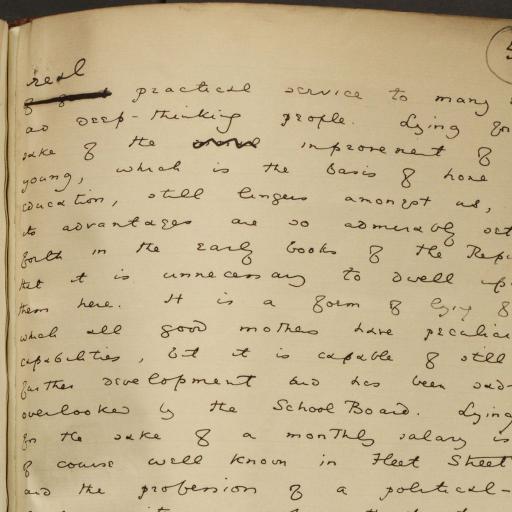 real
practical service to many
as deep-thinking people. Lying for
sake of the improvement of
young, which is the basis of home
education, still lingers amongst us,
its advantages are so admirably set
forth in the early books of the Repu
that it is unnecessary to dwell up
them here. It is a form of lying of
which all good mothers have peculiar
capabilities, but it is capable of still
further development and has been sad-
overlooked by the School Board. Lying
for the sake of a monthly salary is
of course well known in Fleet Street
and the profession of a political-